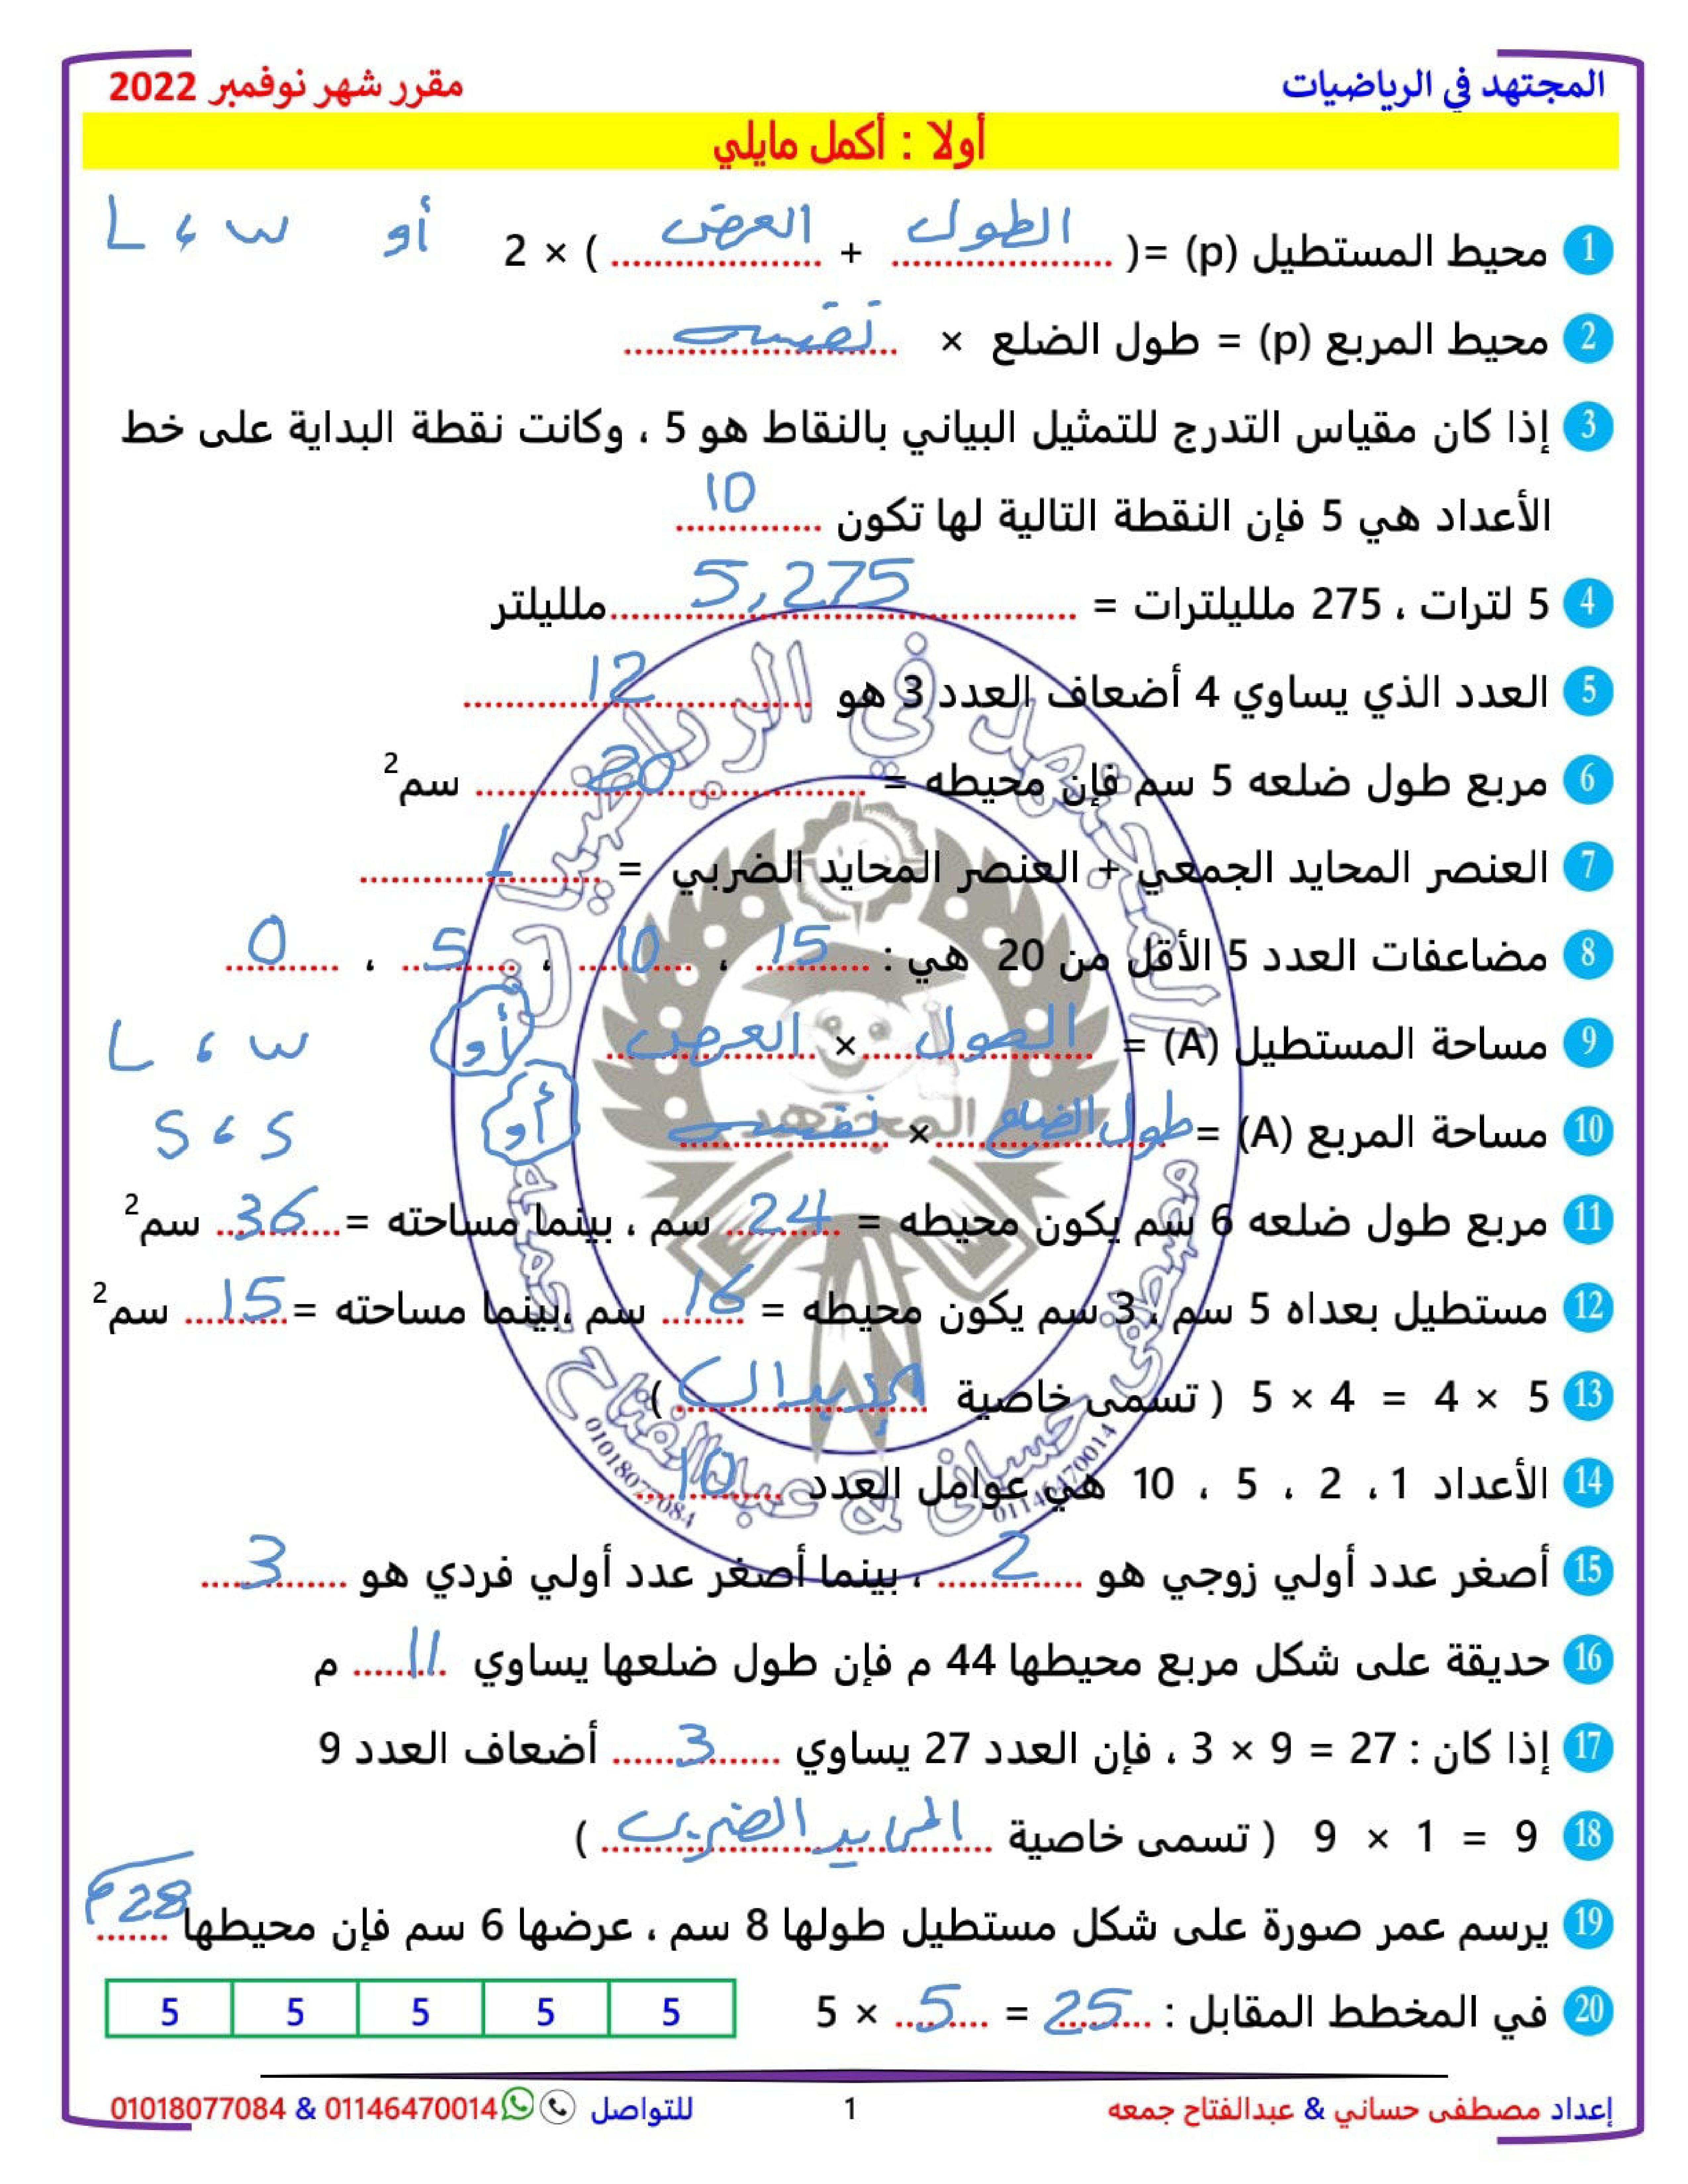 المجتهد في الرياضيات
مقرر شهر نوفمبر 2022
أولا : أكمل مايلي
1 محيط المستطيل (p) =( الطول + العرض ) × 2 أو L ، w
2 محيط المربع (p) = طول الضلع × نفسه
3 إذا كان مقياس التدرج للتمثيل البياني بالنقاط هو 5 ، وكانت نقطة البداية على خط
الأعداد هي 5 فإن النقطة التالية لها تكون 10
4 5 لترات ، 275 ملليلترات = 5,275 ملليلتر
5 العدد الذي يساوي 4 أضعاف العدد 3 هو 12
6 مربع طول ضلعه 5 سم فإن محيطه = 20 سم²
7 العنصر المحايد الجمعي + العنصر المحايد الضربي = 1
8 مضاعفات العدد 5 الأقل من 20 هي : 15 ، 10 ، 5 ، 0
9 مساحة المستطيل (A) = الطول × العرض أو L ، w
10 مساحة المربع (A) = طول الضلع × نفسه أو S ، S
11 مربع طول ضلعه 6 سم يكون محيطه = 24 سم ، بينما مساحته = 36 سم²
12 مستطيل بعداه 5 سم ، 3 سم يكون محيطه = 16 سم ،بينما مساحته = 15 سم²
13 5 × 4 = 4 × 5 ( تسمى خاصية الإبدال )
14 الأعداد 1 ، 2 ، 5 ، 10 هي عوامل العدد 10
15 أصغر عدد أولي زوجي هو 2 ، بينما أصغر عدد أولي فردي هو 3
16 حديقة على شكل مربع محيطها 44 م فإن طول ضلعها يساوي 11 م
17 إذا كان : 27 = 9 × 3 ، فإن العدد 27 يساوي 3 أضعاف العدد 9
18 9 × 1 = 9 ( تسمى خاصية المحايد الضربي )
19 يرسم عمر صورة على شكل مستطيل طولها 8 سم ، عرضها 6 سم فإن محيطها 28 م
20 في المخطط المقابل : 25 = 5 × 5
5 5 5 5 5
المجتهد في الرياضيات
المجتهد
مصطفى حساني & عبدالفتاح جمعه
01018077084
01146470014
إعداد مصطفى حساني & عبدالفتاح جمعه
1
للتواصل 01146470014 & 01018077084